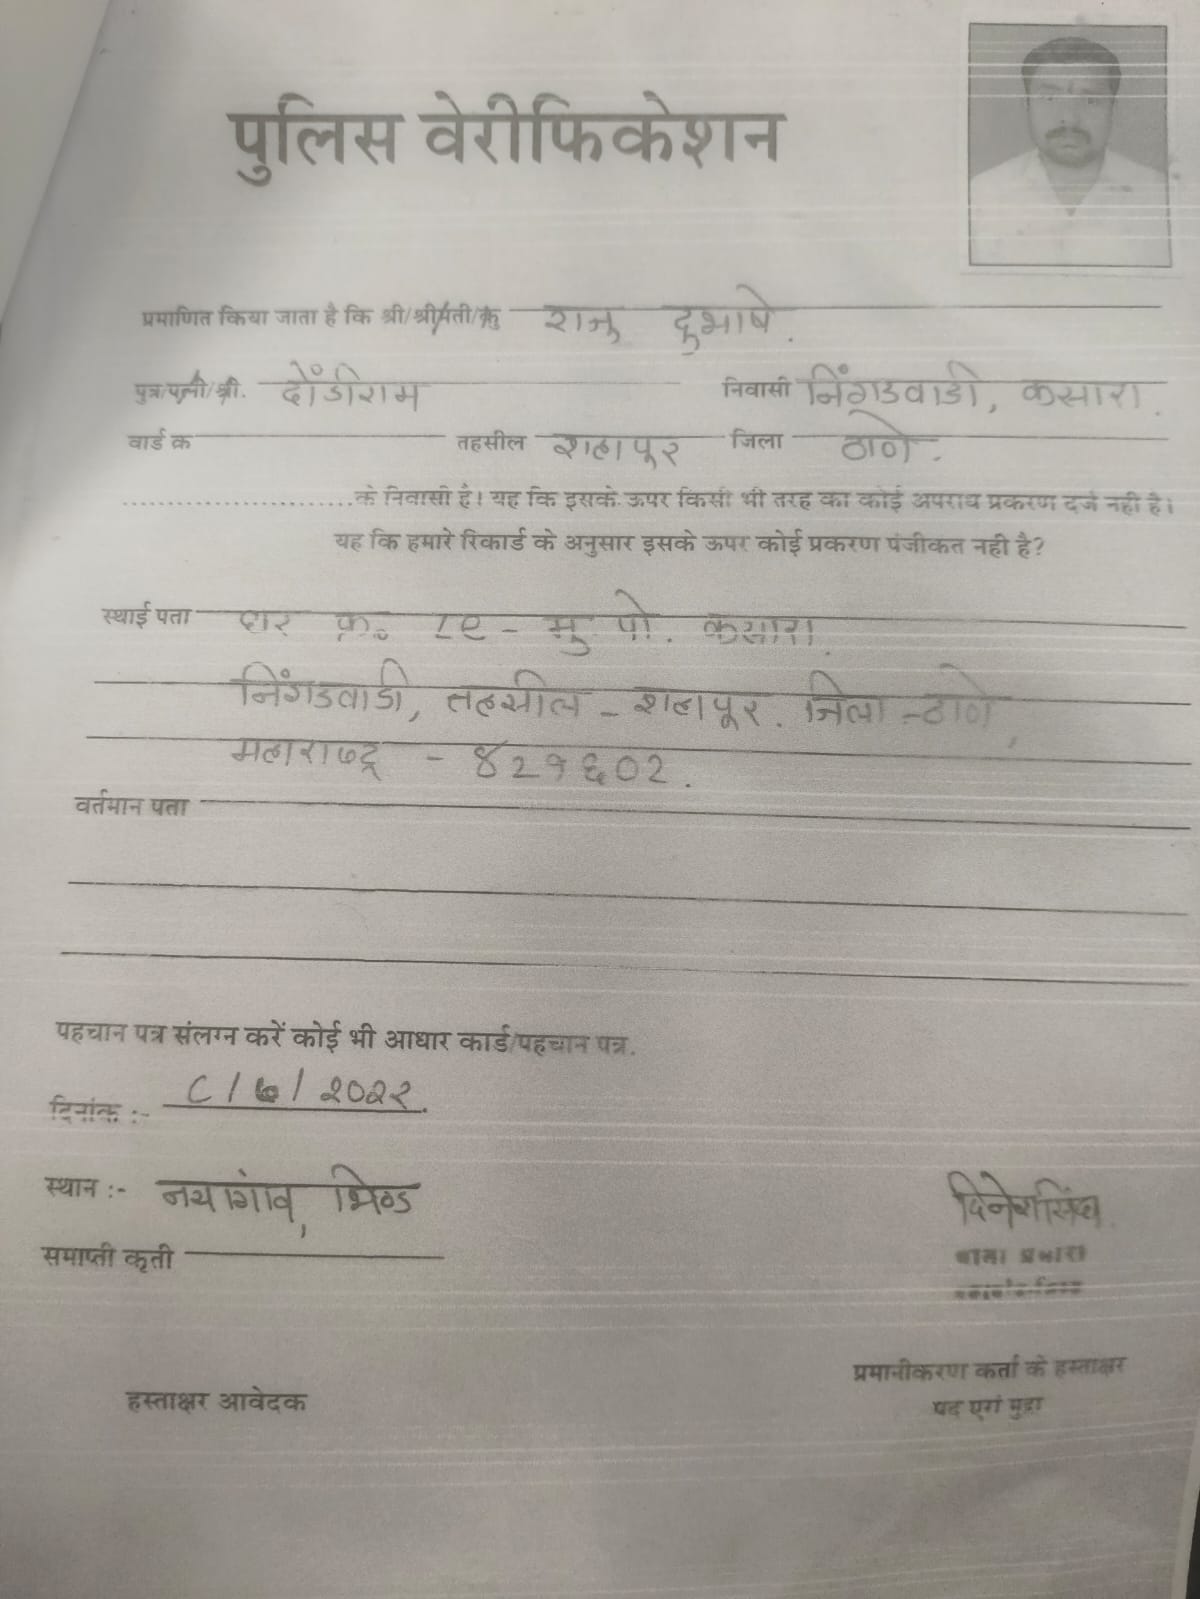 पुलिस वेरीफिकेशन
प्रमाणित किया जाता है कि श्री/श्रीमती/कु राजु दुभाषे.
पुत्र/पत्नी/श्री. दोंडीराम निवासी निंगडवाडी, कसारा.
वार्ड क्र तहसील शहापूर जिला ठाणे.
........................के निवासी है। यह कि इसके ऊपर किसी भी तरह का कोई अपराध प्रकरण दर्ज नही है।
यह कि हमारे रिकार्ड के अनुसार इसके ऊपर कोई प्रकरण पंजीकत नही है?
स्थाई पता घर क्र. ८९ - मु. पो. कसारा.
निंगडवाडी, तहसील - शहापूर. जिला - ठाणे,
महाराष्ट्र - ४२१६०२.
वर्तमान पता
पहचान पत्र संलग्न करें कोई भी आधार कार्ड/पहचान पत्र.
दिनांक :- ८/६/२०२२.
स्थान :- नयागांव, भिण्ड
दिनेशसिंह
समाप्ती कृती
हस्ताक्षर आवेदक
प्रमानीकरण कर्ता के हस्ताक्षर
पद एगं मुद्रा